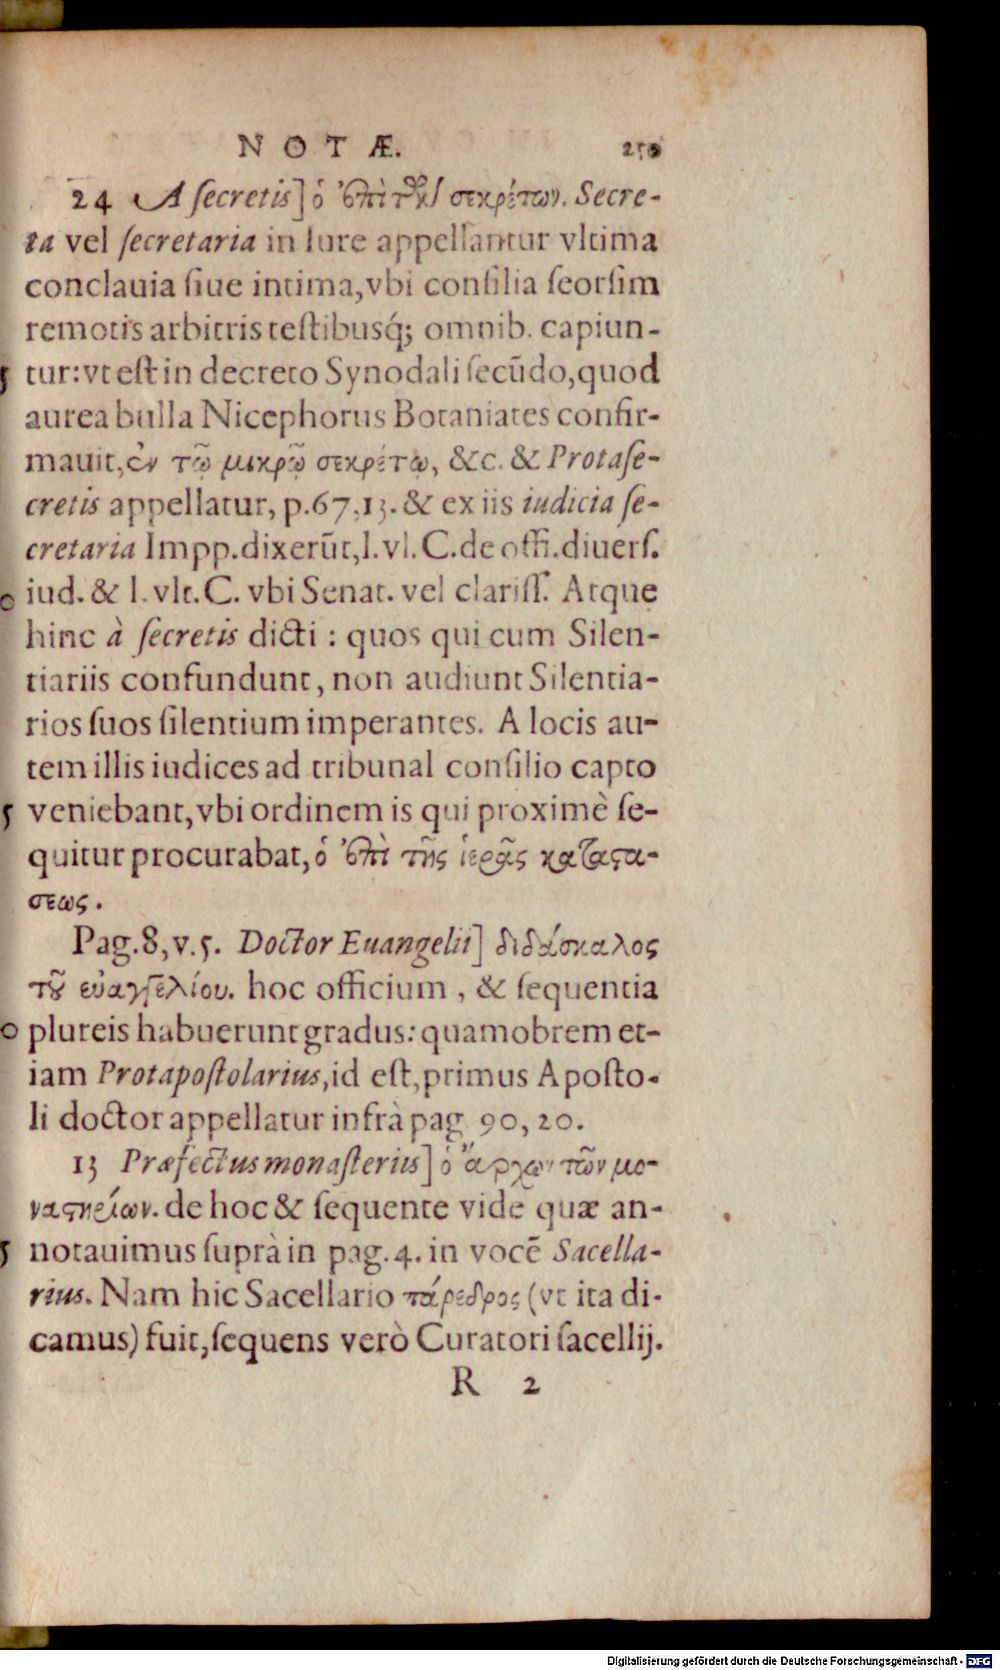 NOTÆ. 259
24 A ſecretis] ὁ ἐπὶ τῶν σεκρέτων. Secre-
ta vel ſecretaria in Iure appellantur vltima
conclauia ſiue intima, vbi conſilia ſeorſim
remotis arbitris teſtibusq́; omnib. capiun-
5 tur: vt eſt in decreto Synodali ſecūdo, quod
aurea bulla Nicephorus Botaniates confir-
mauit, ἐν τῷ μικρῷ σεκρέτῳ, &c. & Protaſe-
cretis appellatur, p. 67, 13. & ex iis iudicia ſe-
cretaria Impp. dixerūt, l. vl. C. de offi. diuerſ.
0 iud. & l. vlt. C. vbi Senat. vel clariſſ. Atque
hinc à ſecretis dicti : quos qui cum Silen-
tiariis confundunt, non audiunt Silentia-
rios ſuos ſilentium imperantes. A locis au-
tem illis iudices ad tribunal conſilio capto
5 veniebant, vbi ordinem is qui proximè ſe-
quitur procurabat, ὁ ἐπὶ τῆς ἱερᾶς καταςά-
σεως.
Pag. 8, v. 5. Doctor Euangelii] διδάσκαλος
τοῦ εὐαγγελίου. hoc officium, & ſequentia
0 plureis habuerunt gradus: quamobrem et-
iam Protapoſtolarius, id eſt, primus Apoſto-
li doctor appellatur infrà pag 90, 20.
13 Præfectus monaſteriis] ὁ ἄρχων τῶν μο-
ναςηρίων. de hoc & ſequente vide quæ an-
5 notauimus ſuprà in pag. 4. in vocē Sacella-
rius. Nam hic Sacellario πάρεδρος (vt ita di-
camus) fuit, ſequens verò Curatori ſacellij.
R 2
Digitalisierung gefördert durch die Deutsche Forschungsgemeinschaft - DFG